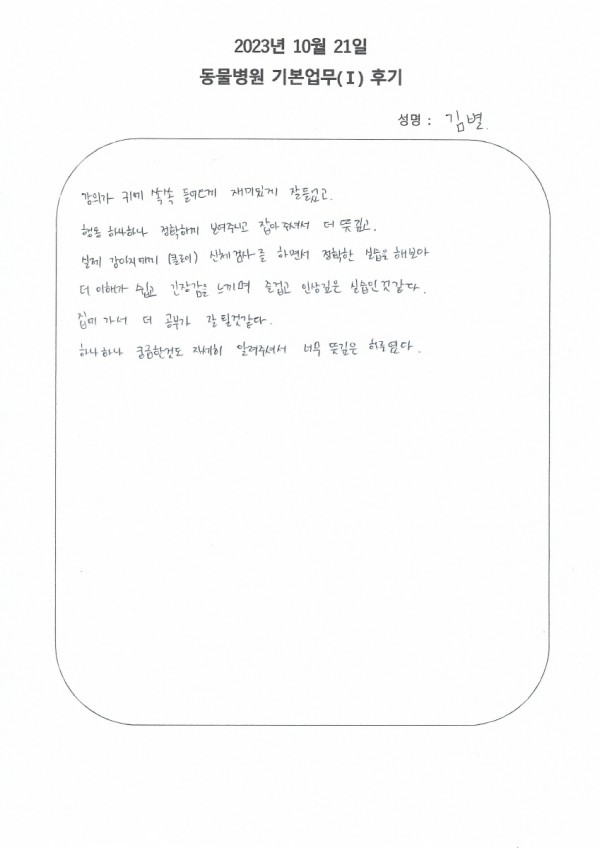 2023년 10월 21일
동물병원 기본업무(I) 후기
성명 : 김별
강의가 귀에 쏙쏙 들어오게 재미있게 잘들었고.
행동 하나하나 정확하게 보여주시고 잡아주셔서 더 뜻깊고.
실제 강아지에게 (클로이) 신체검사를 하면서 정확한 실습을 해보아
더 이해가 쉽고 긴장감을 느끼며 즐겁고 인상깊은 실습인것같다.
집에 가서 더 공부가 잘 될것같다.
하나하나 궁금한것도 자세히 알려주셔서 너무 뜻깊은 하루였다.